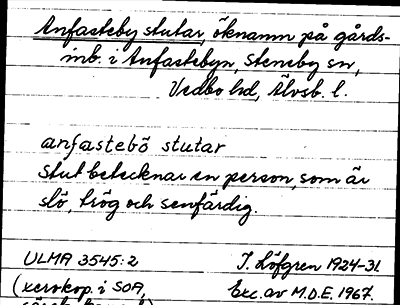 Anfasteby stutar, öknamn på gårds-
inb. i Anfastebyn, Steneby sn,
Vedbo hd, Älvsb. l.
anfastebö stutar
stut betecknar en person, som är
slö, trög och senfärdig.
ULMA 3545:2 J. Löfgren 1924-31.
(xerokop. i SOA, Exc. av M.D.E. 1967.